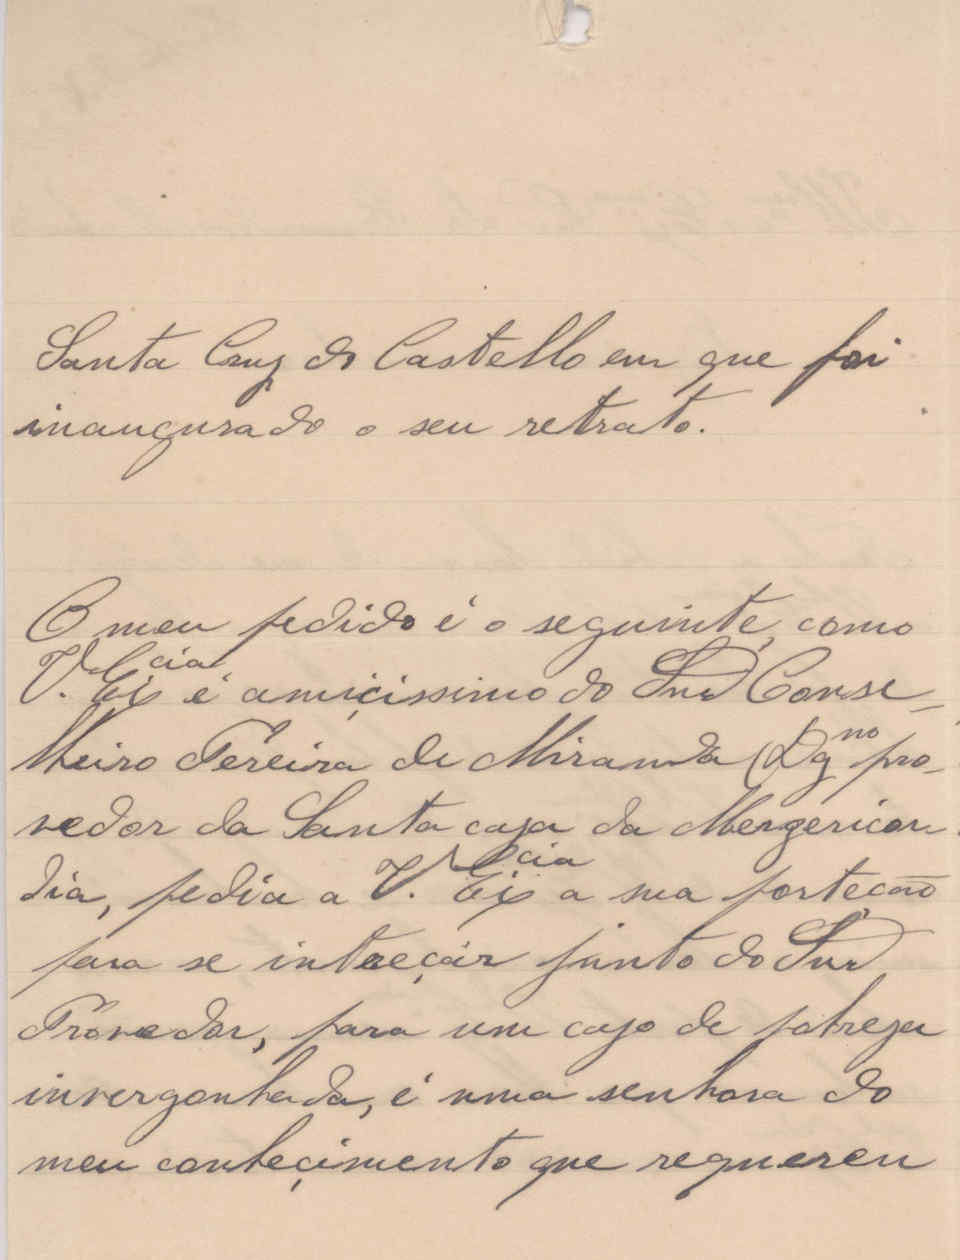 Santa Cruz do Castello em que foi
inaugurado o seu retrato.
O meu pedido é o seguinte, como
V. Ex.cia é amiçissimo do Snr Conse-
lheiro Pereira de Miranda (Dgno pro-
vedor da Santa caza da Mezericor
dia, pedia a V. Ex.cia a sua porteção
para se inteeçár junto do Snr
Provedor, para um cazo de pobreza
invergonhada, é uma senhora do
meu conheçimento que requereu